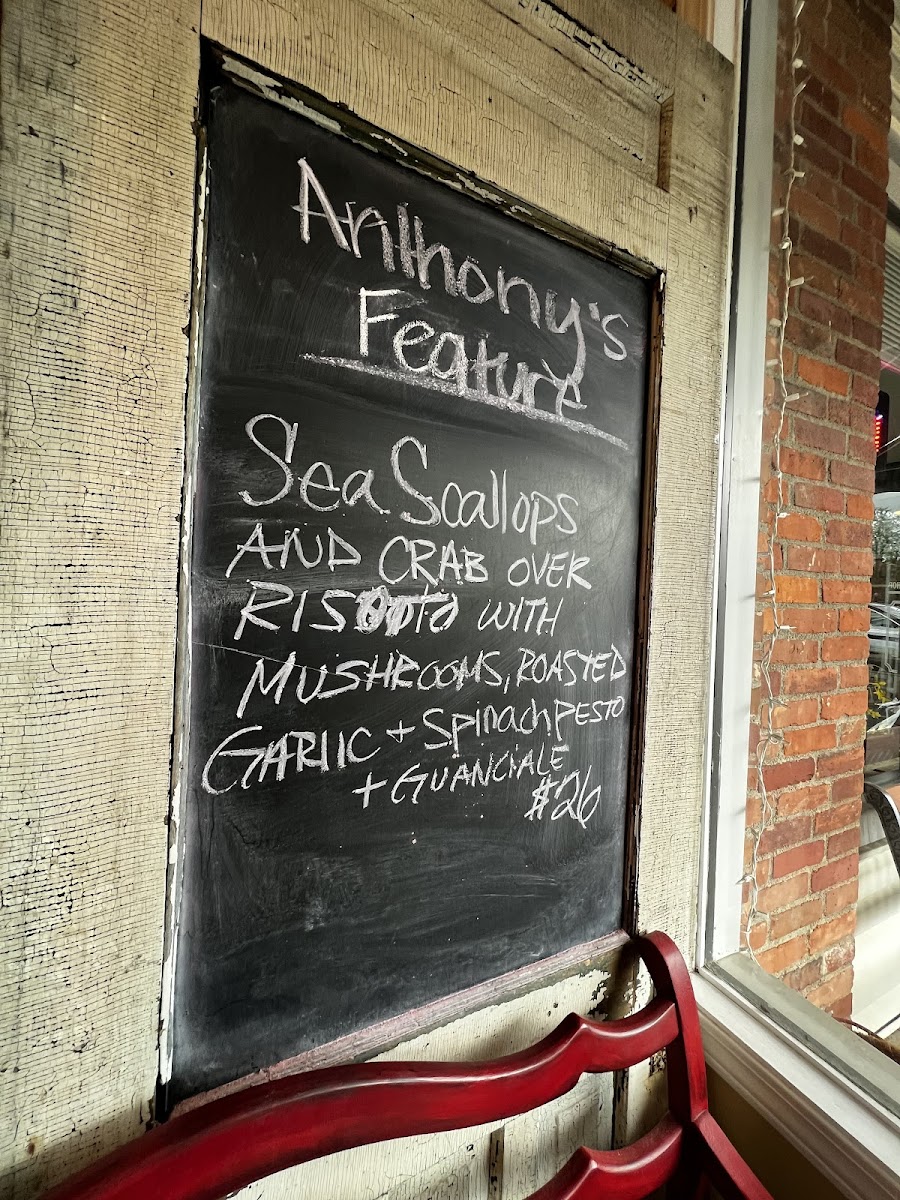 Anthony's
Feature
Sea Scallops
AND CRAB OVER
RISOTTO WITH
MUSHROOMS, ROASTED
GARLIC + Spinach PESTO
+ GUANCIALE
$26